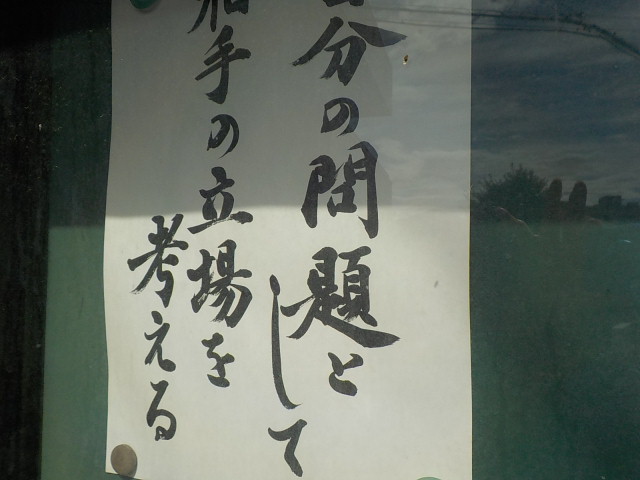 自分の問題として
相手の立場を
考える